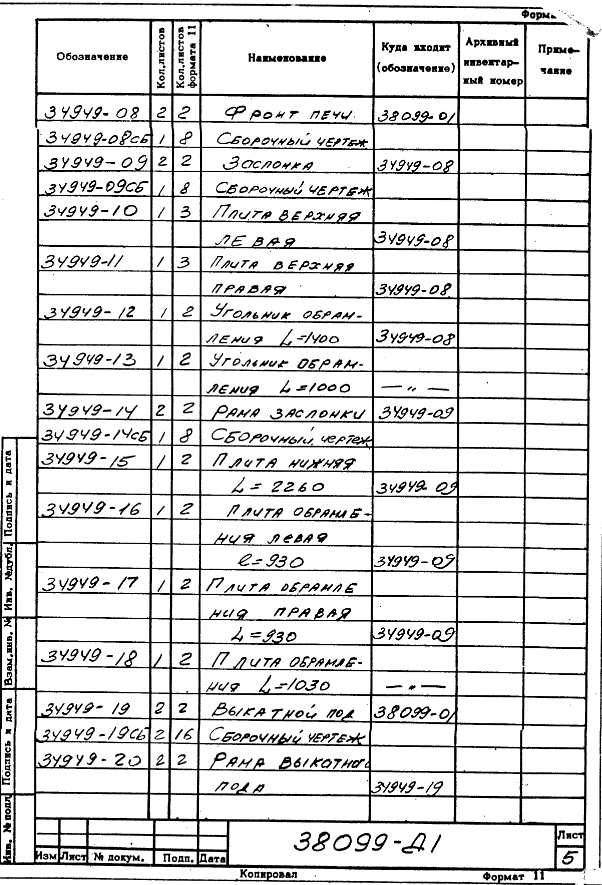 Форм
Обозначение Кол.листов Кол.листов формата 11 Наименование Куда входит (обозначение) Архивный инвентарный номер Примечание
34949-08 2 2 Фронт печи 38099-01
34949-08СБ 1 8 Сборочный чертеж
34949-09 2 2 Заслонка 34949-08
34949-09СБ 1 8 Сборочный чертеж
34949-10 1 3 Плита верхняя
левая 34949-08
34949-11 1 3 Плита верхняя
правая 34949-08
34949-12 1 2 Угольник обрам-
ления L=1400 34949-08
34949-13 1 2 Угольник обрам-
ления L=1000 — „ —
34949-14 2 2 Рама заслонки 34949-09
34949-14СБ 1 8 Сборочный чертеж
34949-15 1 2 Плита нижняя
L=2260 34949-09
34949-16 1 2 Плита обрамле-
ния левая
l=930 34949-09
34949-17 1 2 Плита обрамле
ния правая
L=930 34949-09
34949-18 1 2 Плита обрамле-
ния L=1030 — „ —
34949-19 2 2 Выкатной под 38099-01
34949-19СБ 2 16 Сборочный чертеж
34949-20 2 2 Рама выкатного
пода 34949-19
Инв. № подл. Подпись и дата Взам.инв. № Инв. №дубл. Подпись и дата
38099-Д1
Лист
5
Изм Лист № докум. Подп. Дата
Копировал Формат 11